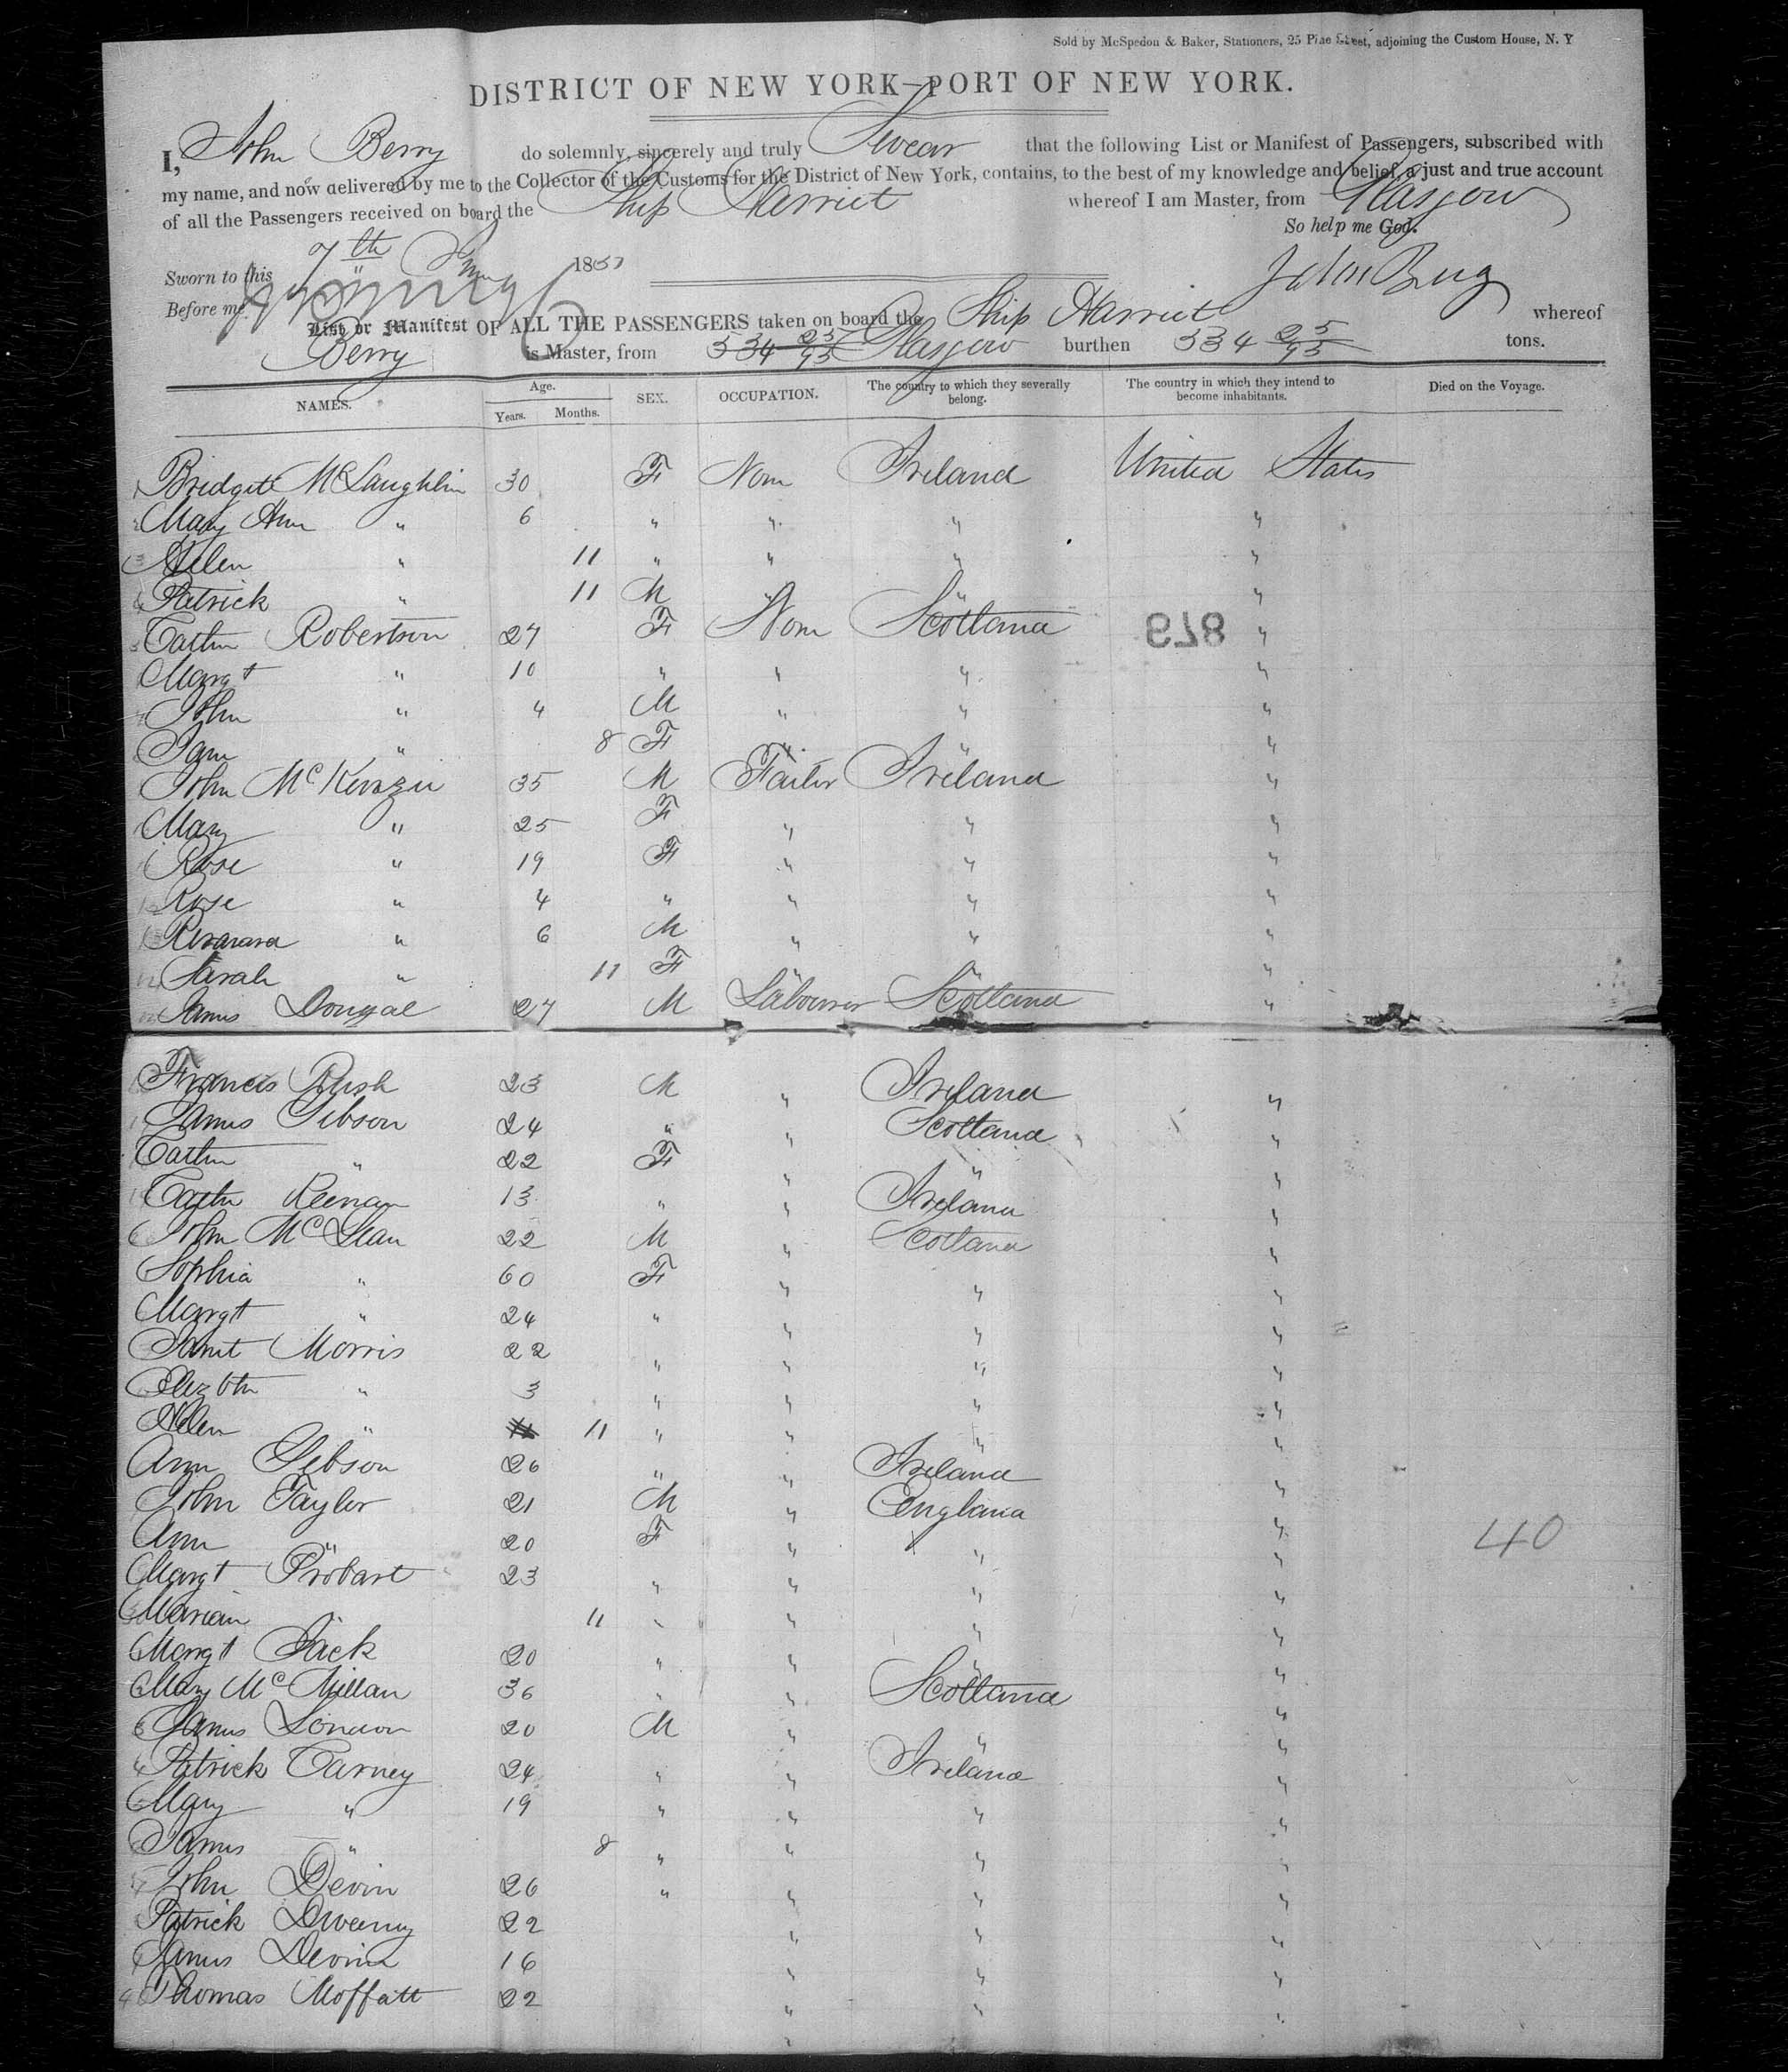 Sold by McSpedon & Baker, Stationers, 25 Pine Street, adjoining the Custom House, N. Y
DISTRICT OF NEW YORK—PORT OF NEW YORK.
I, John Berry do solemnly, sincerely and truly Swear that the following List or Manifest of Passengers, subscribed with
my name, and now delivered by me to the Collector of the Customs for the District of New York, contains, to the best of my knowledge and belief, a just and true account
of all the Passengers received on board the Ship Harriet whereof I am Master, from Glasgow
So help me God.
Sworn to this 7th 185
Before me John Berry
List or Manifest OF ALL THE PASSENGERS taken on board the Ship Harriet whereof
Berry is Master, from 534 25/95 Glasgow burthen 534 25/95 tons.
NAMES. Age. Years. Months. SEX. OCCUPATION. The country to which they severally belong. The country in which they intend to become inhabitants. Died on the Voyage.
1 Bridgett McLaughlin 30 F Non Ireland United States
2 Mary Ann " 6 " " " "
3 Helen " 11 " " " "
4 Patrick " 11 M " " "
5 Cathn Robertson 27 F Non Scotland "
879
Margt " 10 " " " "
7 John " 4 M " " "
Jane " 8 F " " "
John McKenzie 35 M Tailor Ireland "
Mary " 25 F " " "
Rose " 19 F " " "
Rose " 4 " " " "
" 6 M " " "
14 Sarah " 11 F " " "
James Dougal 27 M Labourer Scotland "
Francis Rush 23 M " Ireland "
James Gibson 24 " " Scotland "
Cathn " 22 F " " "
Cathn Keenan 13 " " Ireland "
John McLean 22 M " Scotland "
Sophia " 60 F " " "
Margt " 24 " " " "
Janet Morris 22 " " " "
Elizbth " 3 " " " "
Helen " 11 " " " "
Ann Gibson 26 " " Ireland "
John Taylor 21 M " England "
Ann " 20 F " " "
40
Margt Probart 23 " " " "
Marian 11 " " " "
Margt Jack 20 " " " "
Mary McMillan 36 " " Scotland "
James London 20 M " " "
Patrick Carney 24 " " Ireland "
Mary " 19 " " " "
James " 8 " " " "
John Devin 26 " " " "
Patrick Dweeny 22 " " "
James Devin 16 " " "
40 Thomas Moffatt 22 " " "